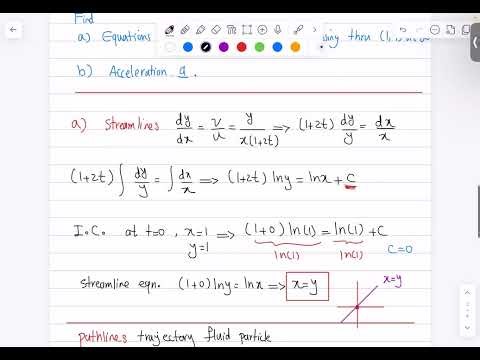 Find
a) Equations thru (1,
b) Acceleration a.
a) Streamlines dy/dx = v/u = y/x(1+2t) ⟹ (1+2t) dy/y = dx/x
(1+2t) ∫ dy/y = ∫ dx/x ⟹ (1+2t) ln y = ln x + C
I.C. at t=0, x=1 ⟹ (1+0) ln(1) = ln(1) + C
y=1 ln(1) ln(1) C=0
streamline eqn. (1+0) ln y = ln x ⟹ x=y x=y
pathlines trajectory fluid particle